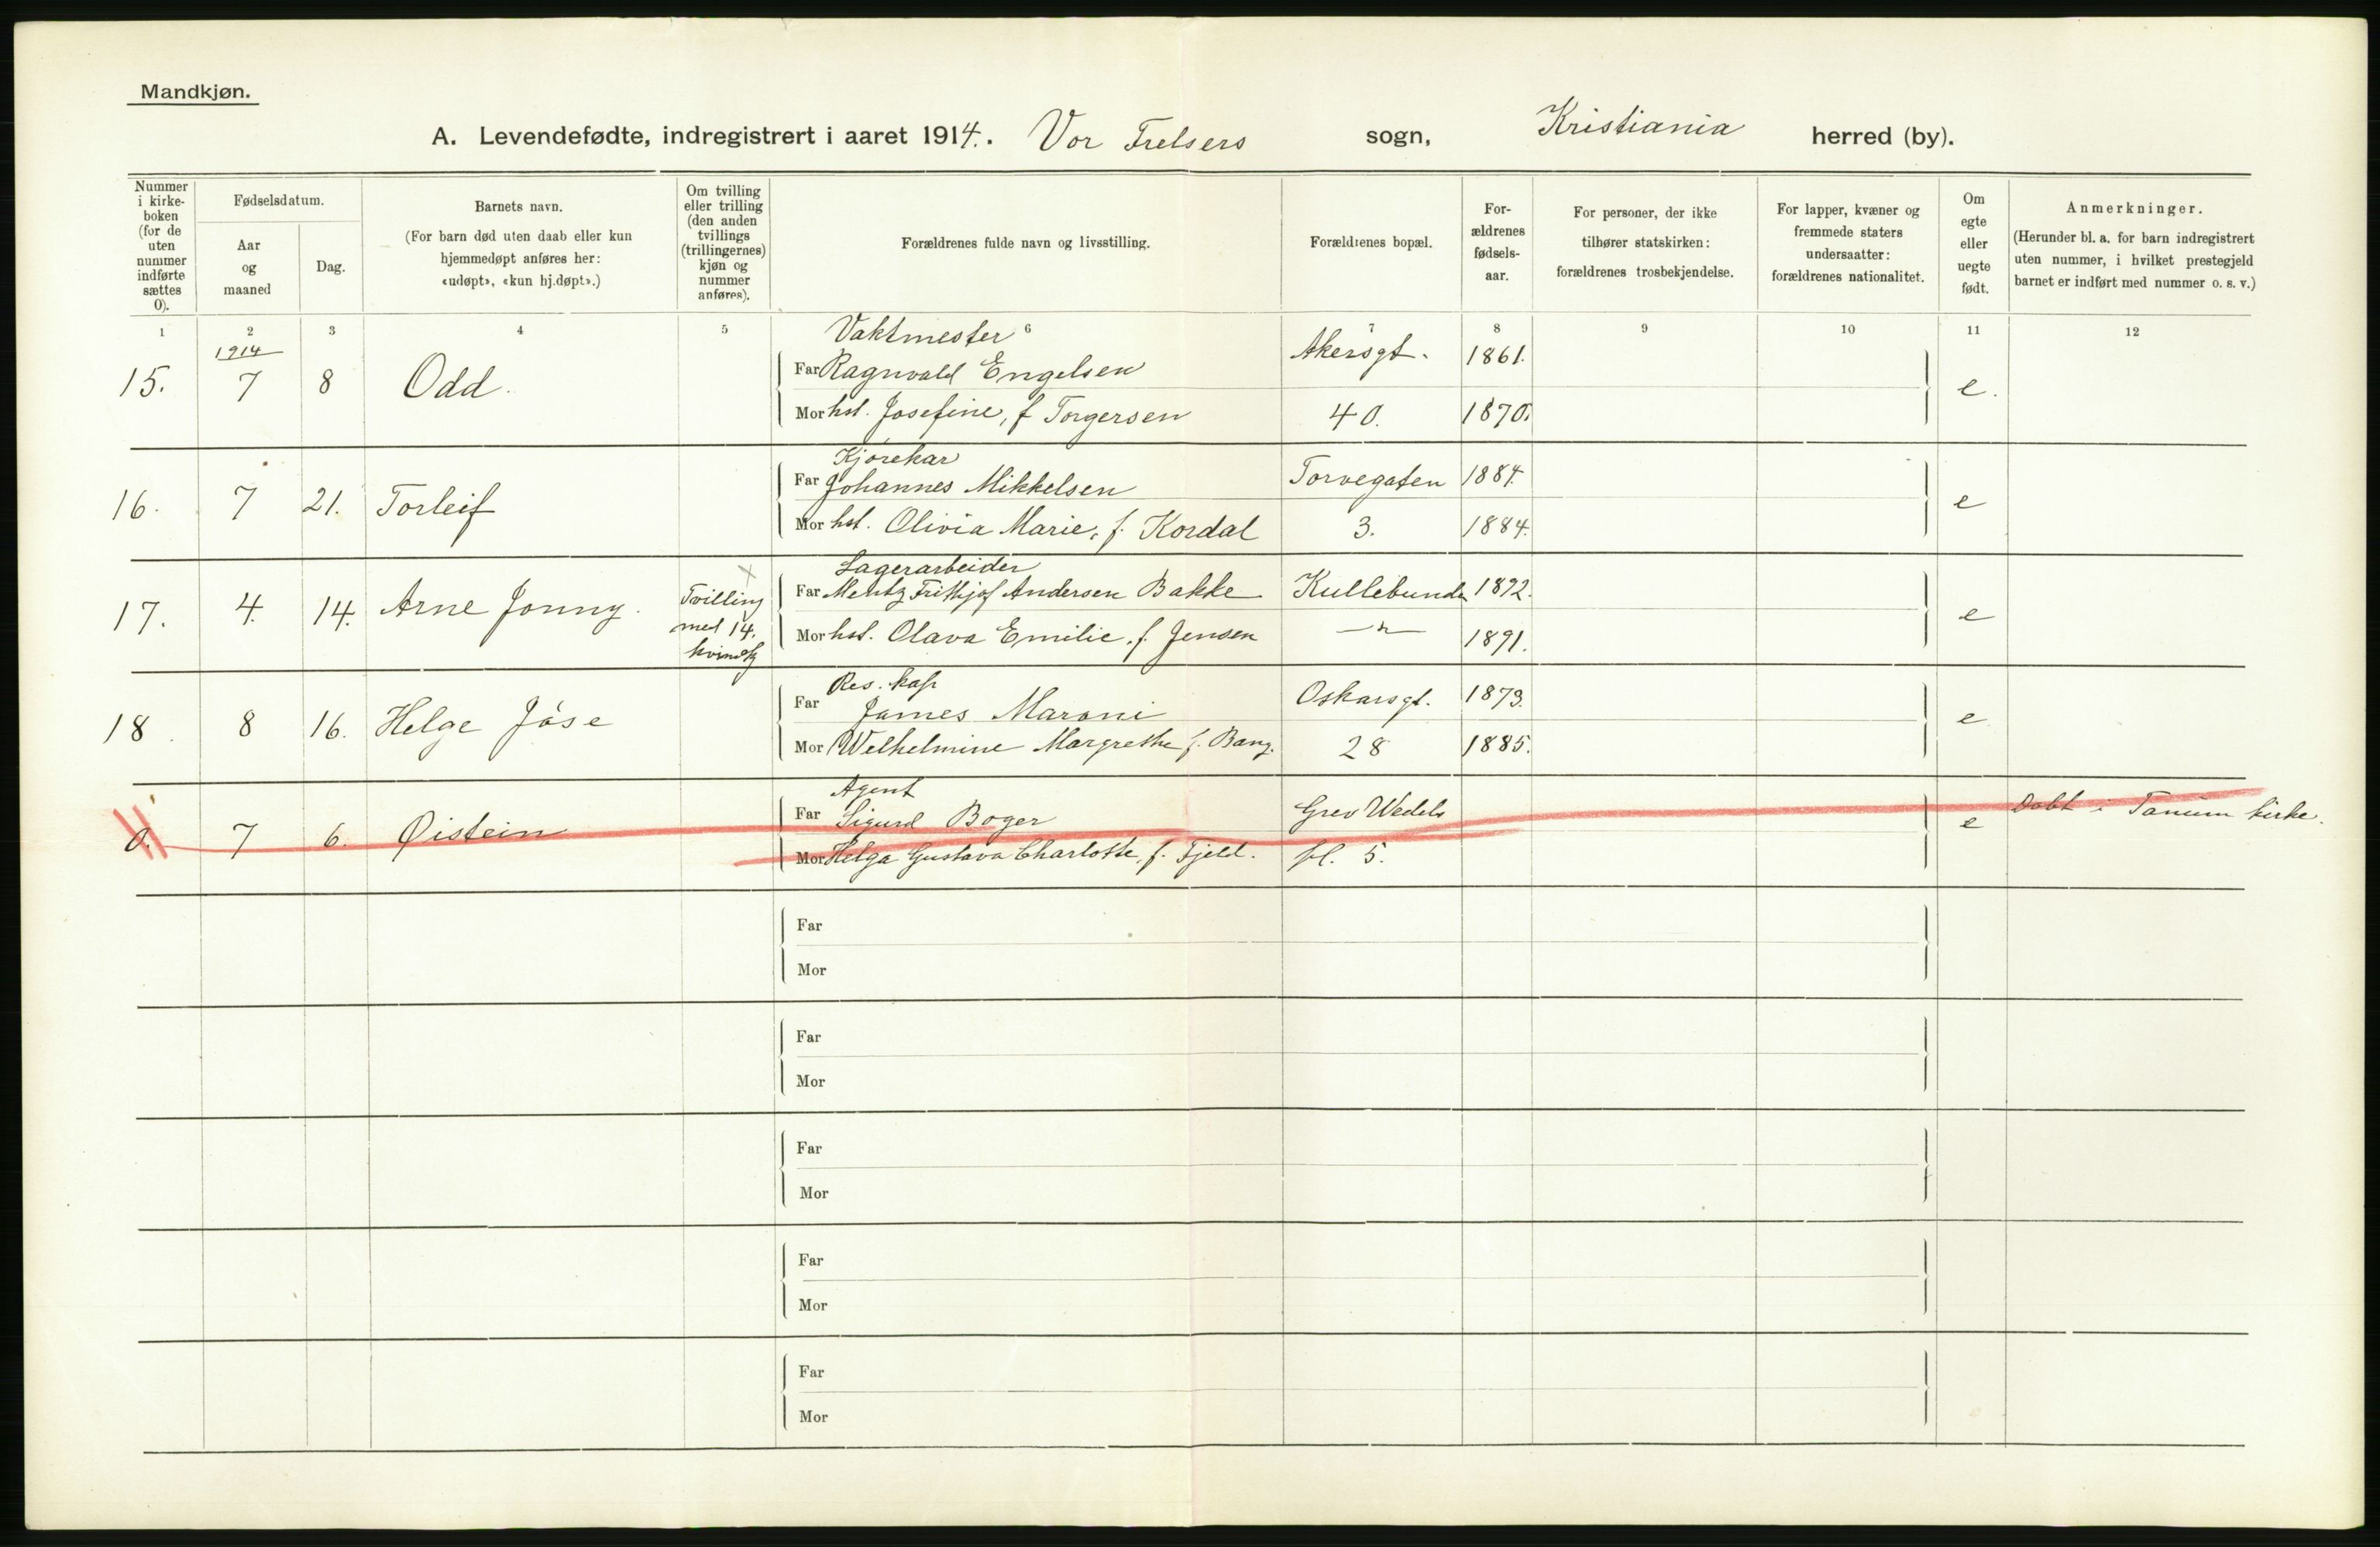 Mandkjøn.
A. Levendefødte, indregistrert i aaret 1914. Vor Frelsers sogn, Kristiania herred (by).
Nummer i kirke-boken (for de uten nummer indførte sættes 0).
Fødselsdatum.
Aar og maaned
Dag.
Barnets navn.
(For barn død uten daab eller kun hjemmedøpt anføres her: «udøpt», «kun hj.døpt».)
Om tvilling eller trilling (den anden tvillings (trillingernes) kjøn og nummer anføres).
Forældrenes fulde navn og livsstilling.
Forældrenes bopæl.
For-ældrenes fødsels-aar.
For personer, der ikke tilhører statskirken: forældrenes trosbekjendelse.
For lapper, kvæner og fremmede staters undersaatter: forældrenes nationalitet.
Om egte eller uegte født.
Anmerkninger.
(Herunder bl. a. for barn indregistrert uten nummer, i hvilket prestegjeld barnet er indført med nummer o. s. v.)
1 2 3 4 5 6 7 8 9 10 11 12
1914
Vaktmester
15. 7 8 Odd. Far Ragnvald Engelsen Akersgt. 1861. e.
Mor hst. Josefine, f Torgersen 40. 1870.
Kjørekar
16. 7 21. Torleif Far Johannes Mikkelsen Torvegaten 1884. e
Mor hst. Olivia Marie, f. Kordal 3. 1884.
Lagerarbeider
17. 4. 14. Arne Jonny. Tvilling med 14. kvindk Far Mentz Frithjof Andersen Bakke Kullebunden 1892. e
Mor hst. Olava Emilie, f. Jensen —"— 1891.
Res. kap
18. 8 16. Helge Jóse Far James Maroni Oskarsgt. 1873. e
Mor Welhelmine Margrethe f. Bang. 28 1885.
Agent
0. 7 6. Øistein Far Sigurd Boger Grev Wedels e Døbt i Tanum kirke.
Mor Helga Gustava Charlotte, f. Fjeld. pl. 5.
Far
Mor
Far
Mor
Far
Mor
Far
Mor
Far
Mor